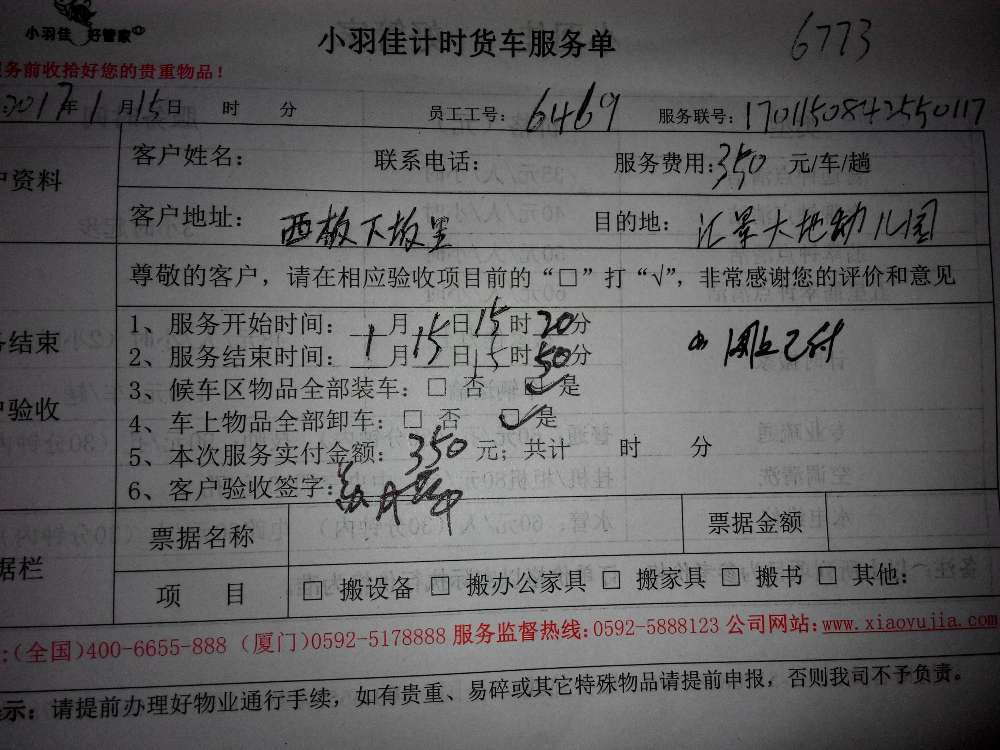 小羽佳 好管家
小羽佳计时货车服务单 6773
务前收拾好您的贵重物品！
2017年1月15日 时 分 员工工号：6469 服务联号：1701150842550117
户资料
客户姓名： 联系电话： 服务费用：350 元/车/趟
客户地址： 西 下 里 目的地： 汇景大地幼儿园
尊敬的客户，请在相应验收项目前的“□”打“√”，非常感谢您的评价和意见
结束
户验收
1、服务开始时间：1月15日15时20分
2、服务结束时间：1月15日15时50分
网上已付
3、候车区物品全部装车：□ 否 ☑ 是
4、车上物品全部卸车：□ 否 ☑ 是
5、本次服务实付金额：350 元；共计 时 分
6、客户验收签字：
据栏
票据名称 票据金额
项 目 □ 搬设备 □ 搬办公家具 □ 搬家具 □ 搬书 □ 其他：
:(全国)400-6655-888 (厦门)0592-5178888 服务监督热线：0592-5888123 公司网站：www.xiaoyujia.com
示：请提前办理好物业通行手续，如有贵重、易碎或其它特殊物品请提前申报，否则我司不予负责。